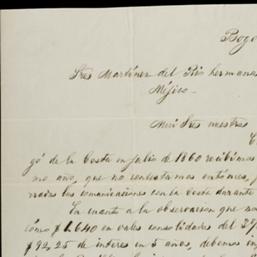 Bogo
Sres Martínez del Rio herman
Méjico
Mui Sres nuestros
gó de la Costa en Julio de 1860 recibimos
mo año, que no contestamos entónces, p
las comunicaciones con la costa durante
En cuanto a la observacion que
cómo $1.640 en vales consolidados del 3%
$92,25 de interes en 5 años, debemos